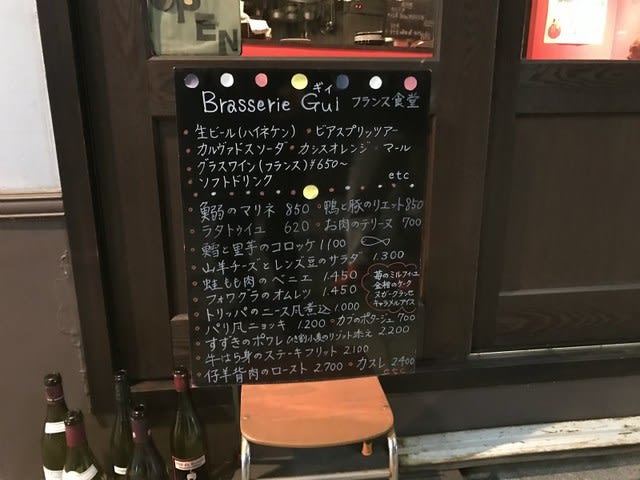 OPEN
Brasserie Gui ギィ フランス食堂
・生ビール(ハイネケン) ・ビアスプリッツアー
・カルヴァドスソーダ ・カシスオレンジ ・マール
・グラスワイン(フランス)¥650〜
・ソフトドリンク etc
・鰯のマリネ 850 ・鴨と豚のリエット 850
・ラタトゥイユ 620 ・お肉のテリーヌ 700
・鱈と里芋のコロッケ 1100
・山羊チーズとレンズ豆のサラダ 1.300
・蛙もも肉のベニエ 1.450
・フォワグラのオムレツ 1.450
苺のミルフィユ
金柑のケーク
ヌガーグラッセ
キャラメルアイス
・トリッパのニース風煮込 1.000
・パリ風ニョッキ 1.200 ・カブのポタージュ 700
・すずきのポワレ ひき割小麦のリゾット添え 2.200
・牛はら身のステーキフリット 2.100
・仔羊背肉のロースト 2.700 ・カスレ 2400